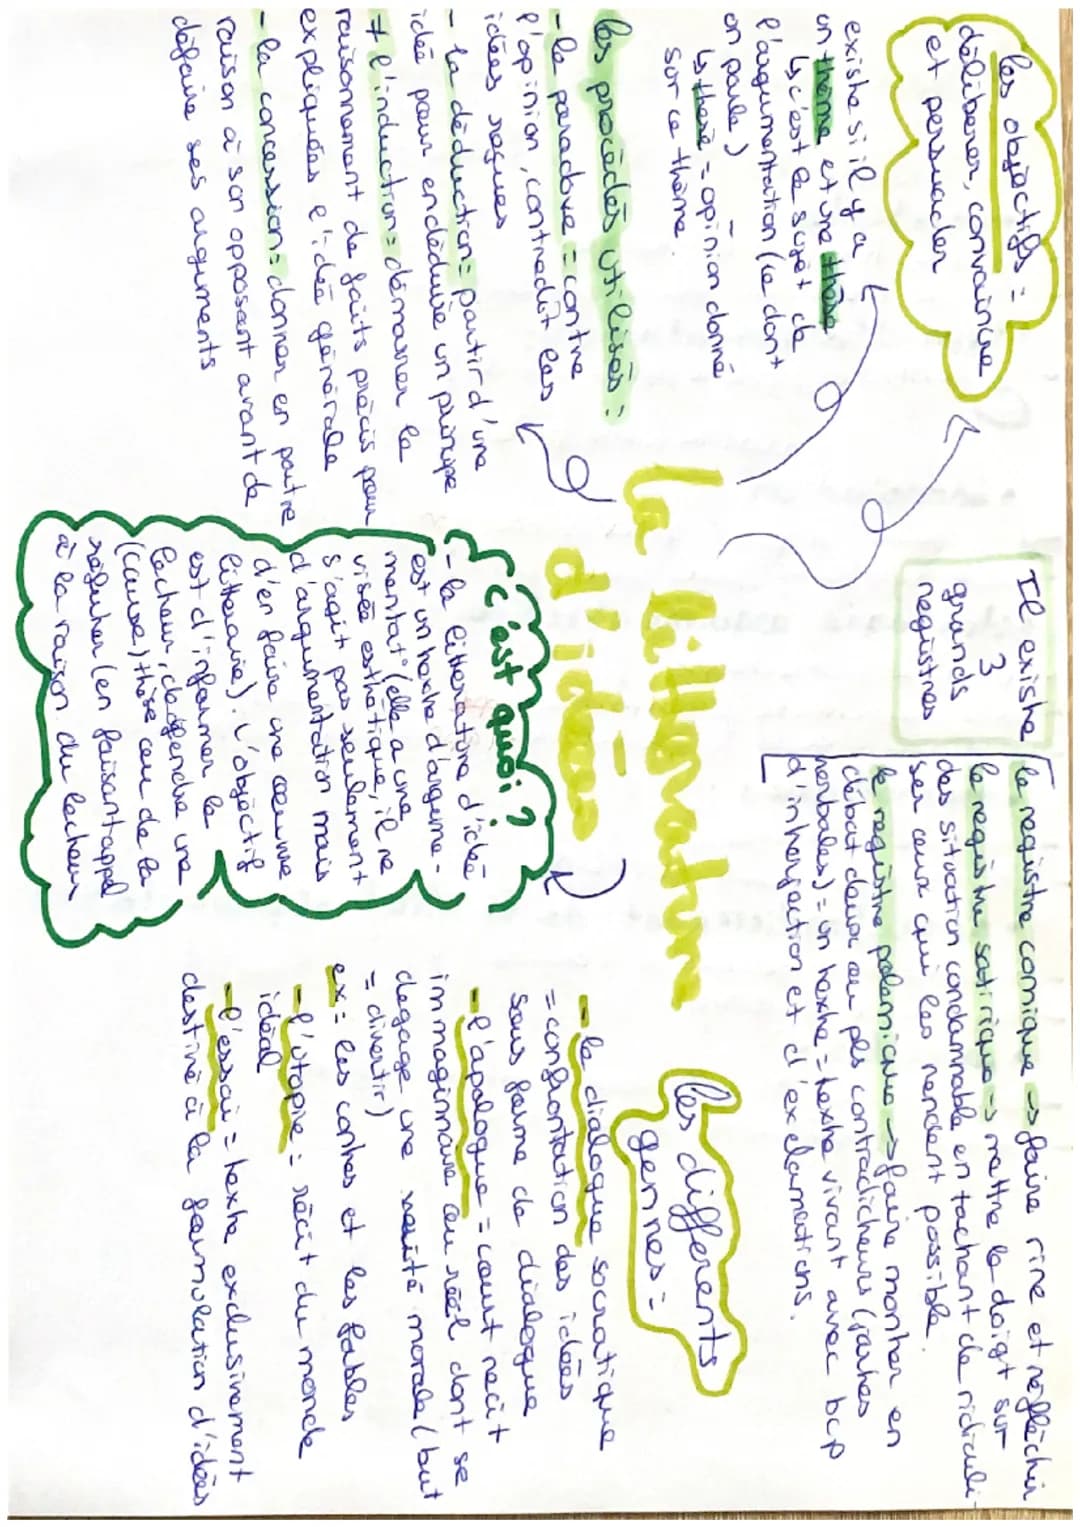 La littérature
d'idées
les objectifs =
délibérer, convaincre
et persuader
existe si il y a
un thème et une thèse
↳ c'est le sujet de
l'argumentation (ce dont
on parle)
↳ thèse = opinion donné
sur ce thème.
les procédés utilisés =
- le paradoxe = contre
l'opinion, contredit les
idées reçues
- la déduction = partir d'une
idée pour en déduire un principe
≠ l'induction = démarrer le
raisonnement de faits précis pour
expliquées l'idée générale
- la concession = donner en partie
raison à son opposant avant de
défaire ses arguments
c'est quoi ?
- la littérature d'idée
est un texte d'argume-
mentat° (elle a une
visée esthétique, il ne
s'agit pas seulement
d'argumentation mais
d'en faire une œuvre
littéraire). L'objectif
est d'informer le
lecteur, de défendre une
(cause) thèse ou de la
réfuter (en faisant appel
à la raison du lecteur
Il existe
3
grands
registres
le registre comique → faire rire et réfléchir
le registre satirique → mettre le doigt sur
des situation condamnable en tachant de ridiculi-
ser ceux qui les rendent possible.
le registre polémique → faire monter en
débat deux ou pls contradicteurs (joutes
verbales) = un texte = texte vivant avec bcp
d'interjection et d'exclamations.
les différents
genres =
- le dialogue socratique
= confrontation des idées
sous forme de dialogue
- l'apologue = court récit
immaginaire ou réel dont se
degage une vérité morale (but
= divertir)
ex = les contes et les fables
- l'utopie = récit du monde
idéal
- l'essai = texte exclusivement
destiné à la formulation d'idées